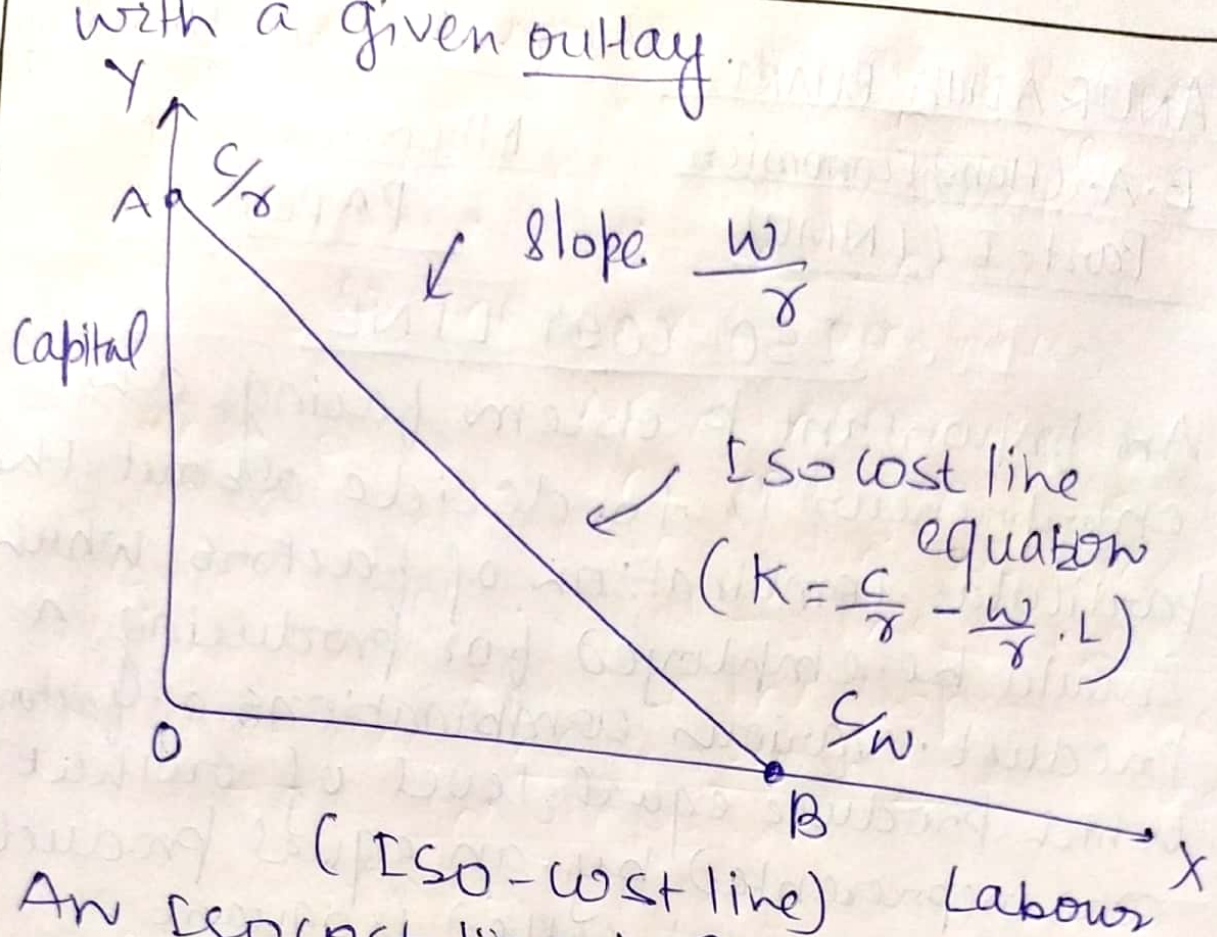 with a given outlay.
Y
A C/r
Slope w/r
Capital
Iso cost line
equation
(K = C/r - w/r . L)
O
C/w
B
X
(ISO-cost line)
Labour
An Isocost